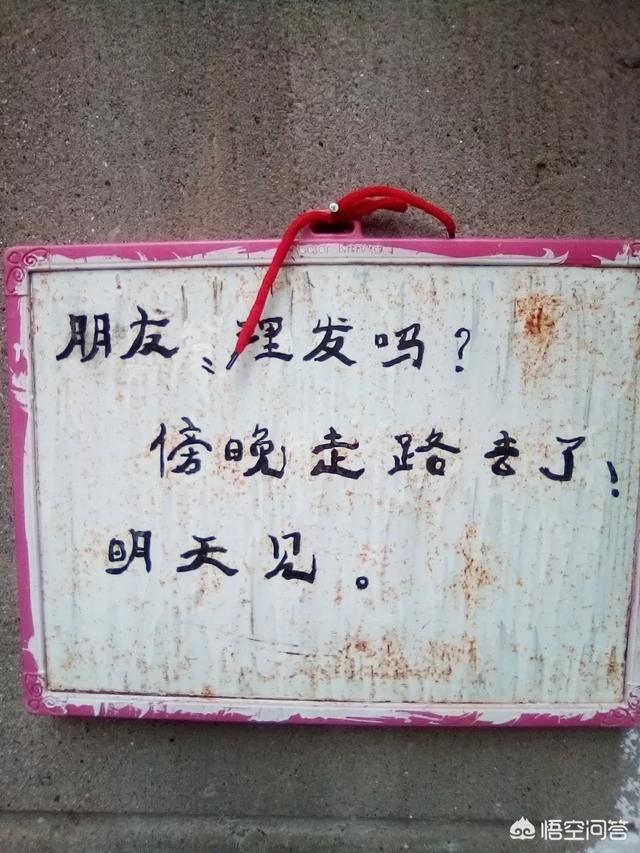 朋友、理发吗？
傍晚走路去了！
明天见。
悟空问答